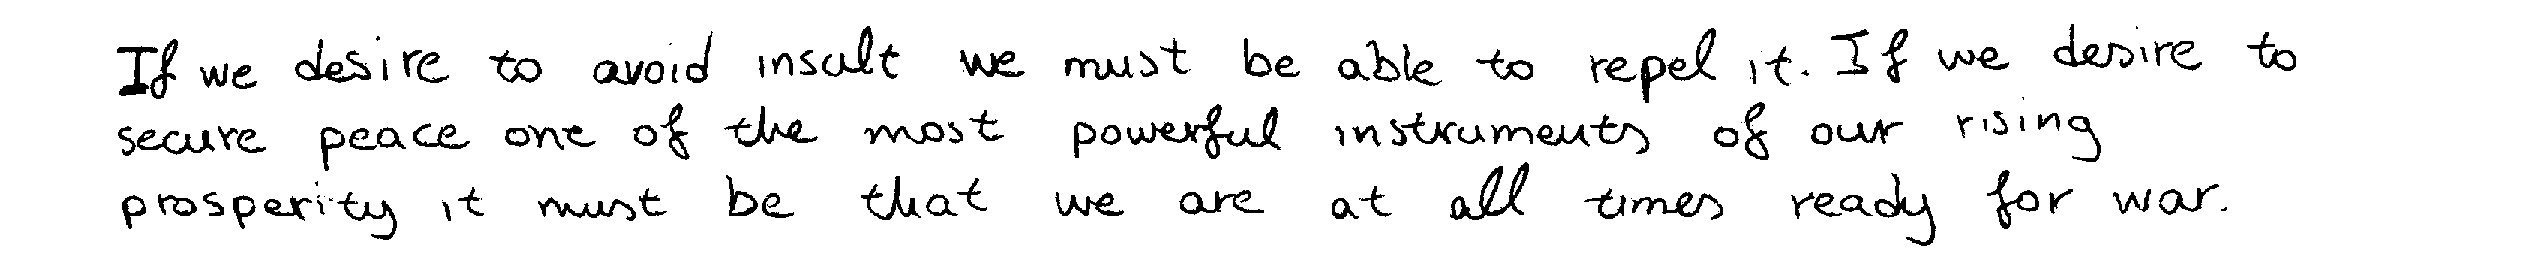 If we desire to avoid insult we must be able to repel it. If we desire to
secure peace one of the most powerful instruments of our rising
prosperity it must be that we are at all times ready for war.